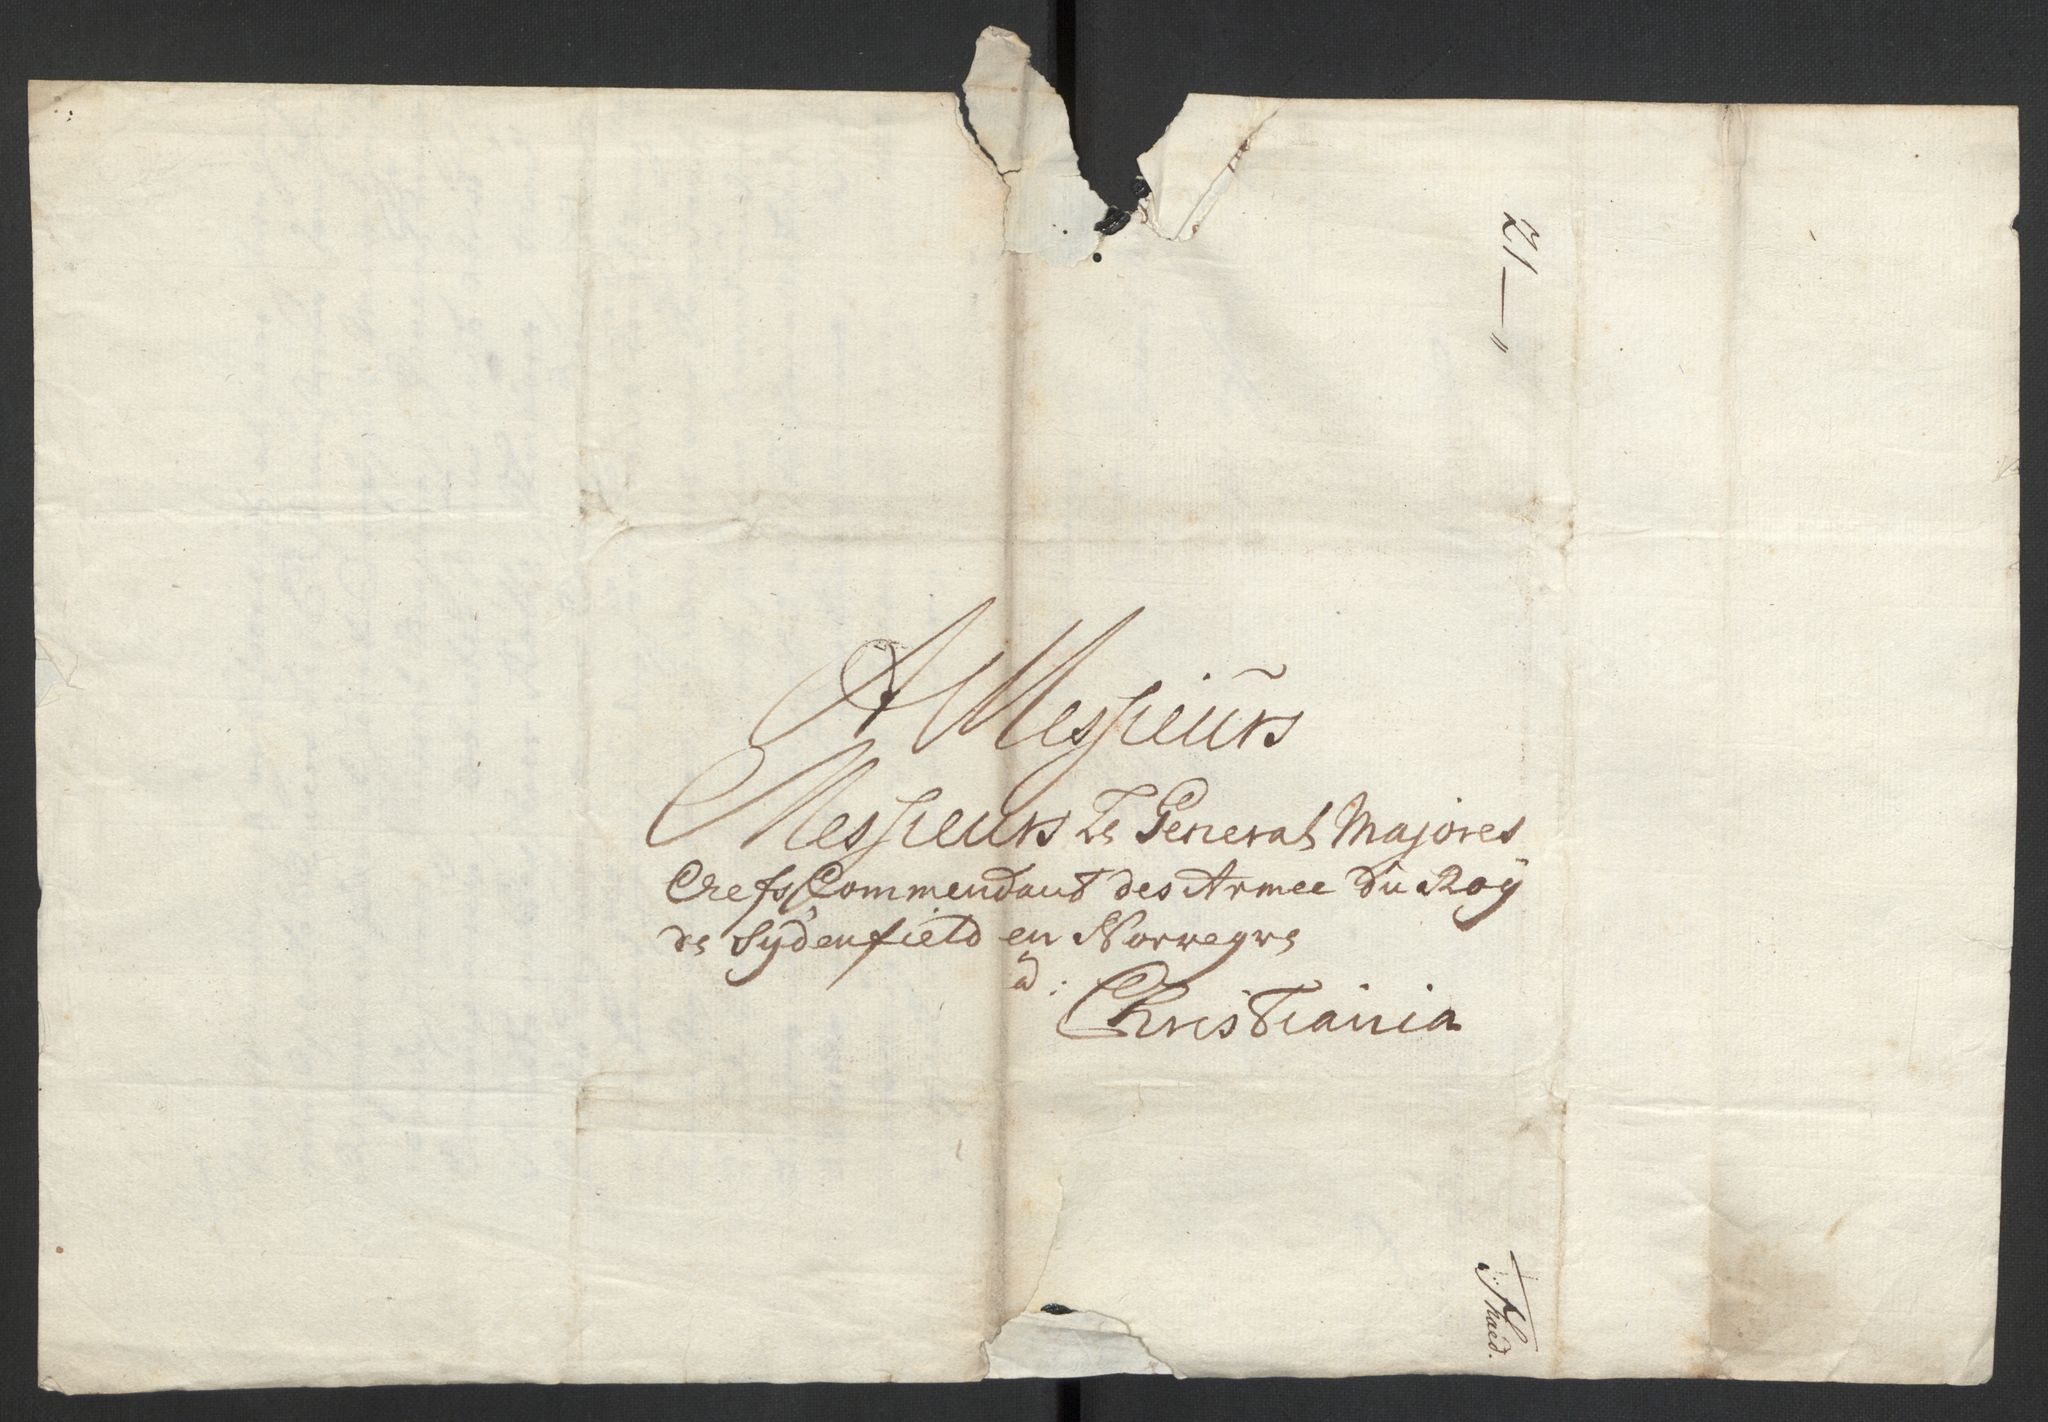 A Messieurs
Messieurs Le General Majores
Chefs Commendant des Armee du Roÿ
de Sydenfield en Norwegre
a:
Christiania
21 — "